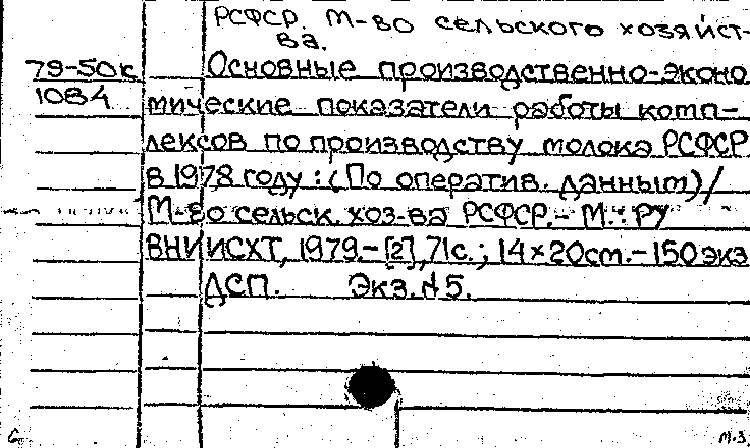 РСФСР. М-во сельского хозяйст-
ва.
79-50к Основные производственно-эконо
1084 мические показатели работы комп-
лексов по производству молока РСФСР
в 1978 году : (По оператив. данным) /
М-во сельск. хоз-ва РСФСР. – М. : РУ
ВНИИСХТ, 1979. – [2], 71 с. ; 14×20 см. – 150 экз
ДСП. Экз. № 5.